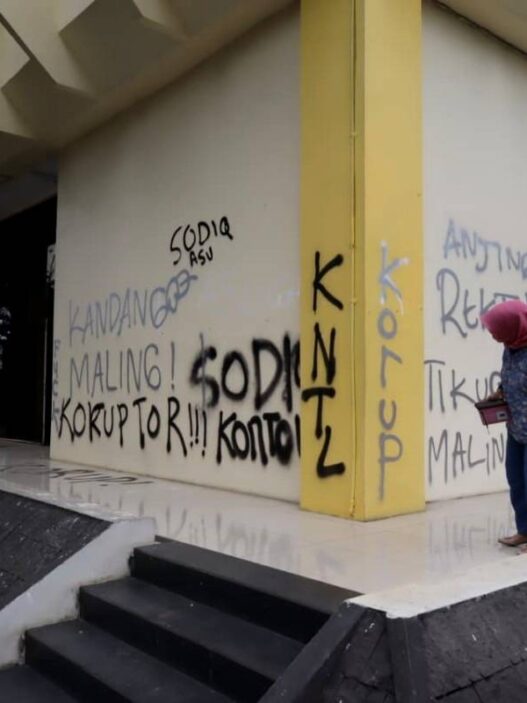 SODIQ
ASU
KANDANG
MALING!
KORUPTOR!!!
SODIQ
KONTOL
KNTL
KORUP
ANJING
TIKUS
MALING